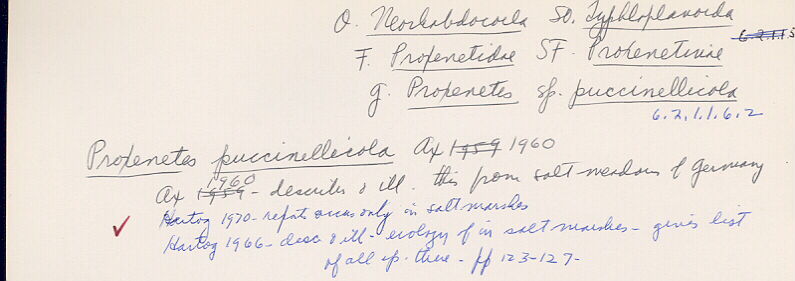 O. Neorhabdocoela SO. Typhloplanoida
6.2.1.1.5
F. Proxenetidae SF. Proxenetinae
g. Proxenetes sp. puccinellicola
6.2.1.1.6.2
Proxenetes puccinellicola Ax 1959 1960
1960
Ax 1959 - describes & ill. this from salt meadows of Germany
Hartog 1970 - repts occurs only in salt marshes
Hartog 1966 - desc & ill - ecology of in salt marshes - gives list
of all sp. there - pp 123-127-